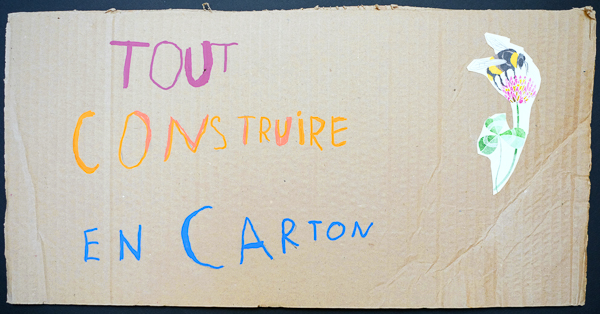 TOUT
CONSTRUiRE
EN CARTON